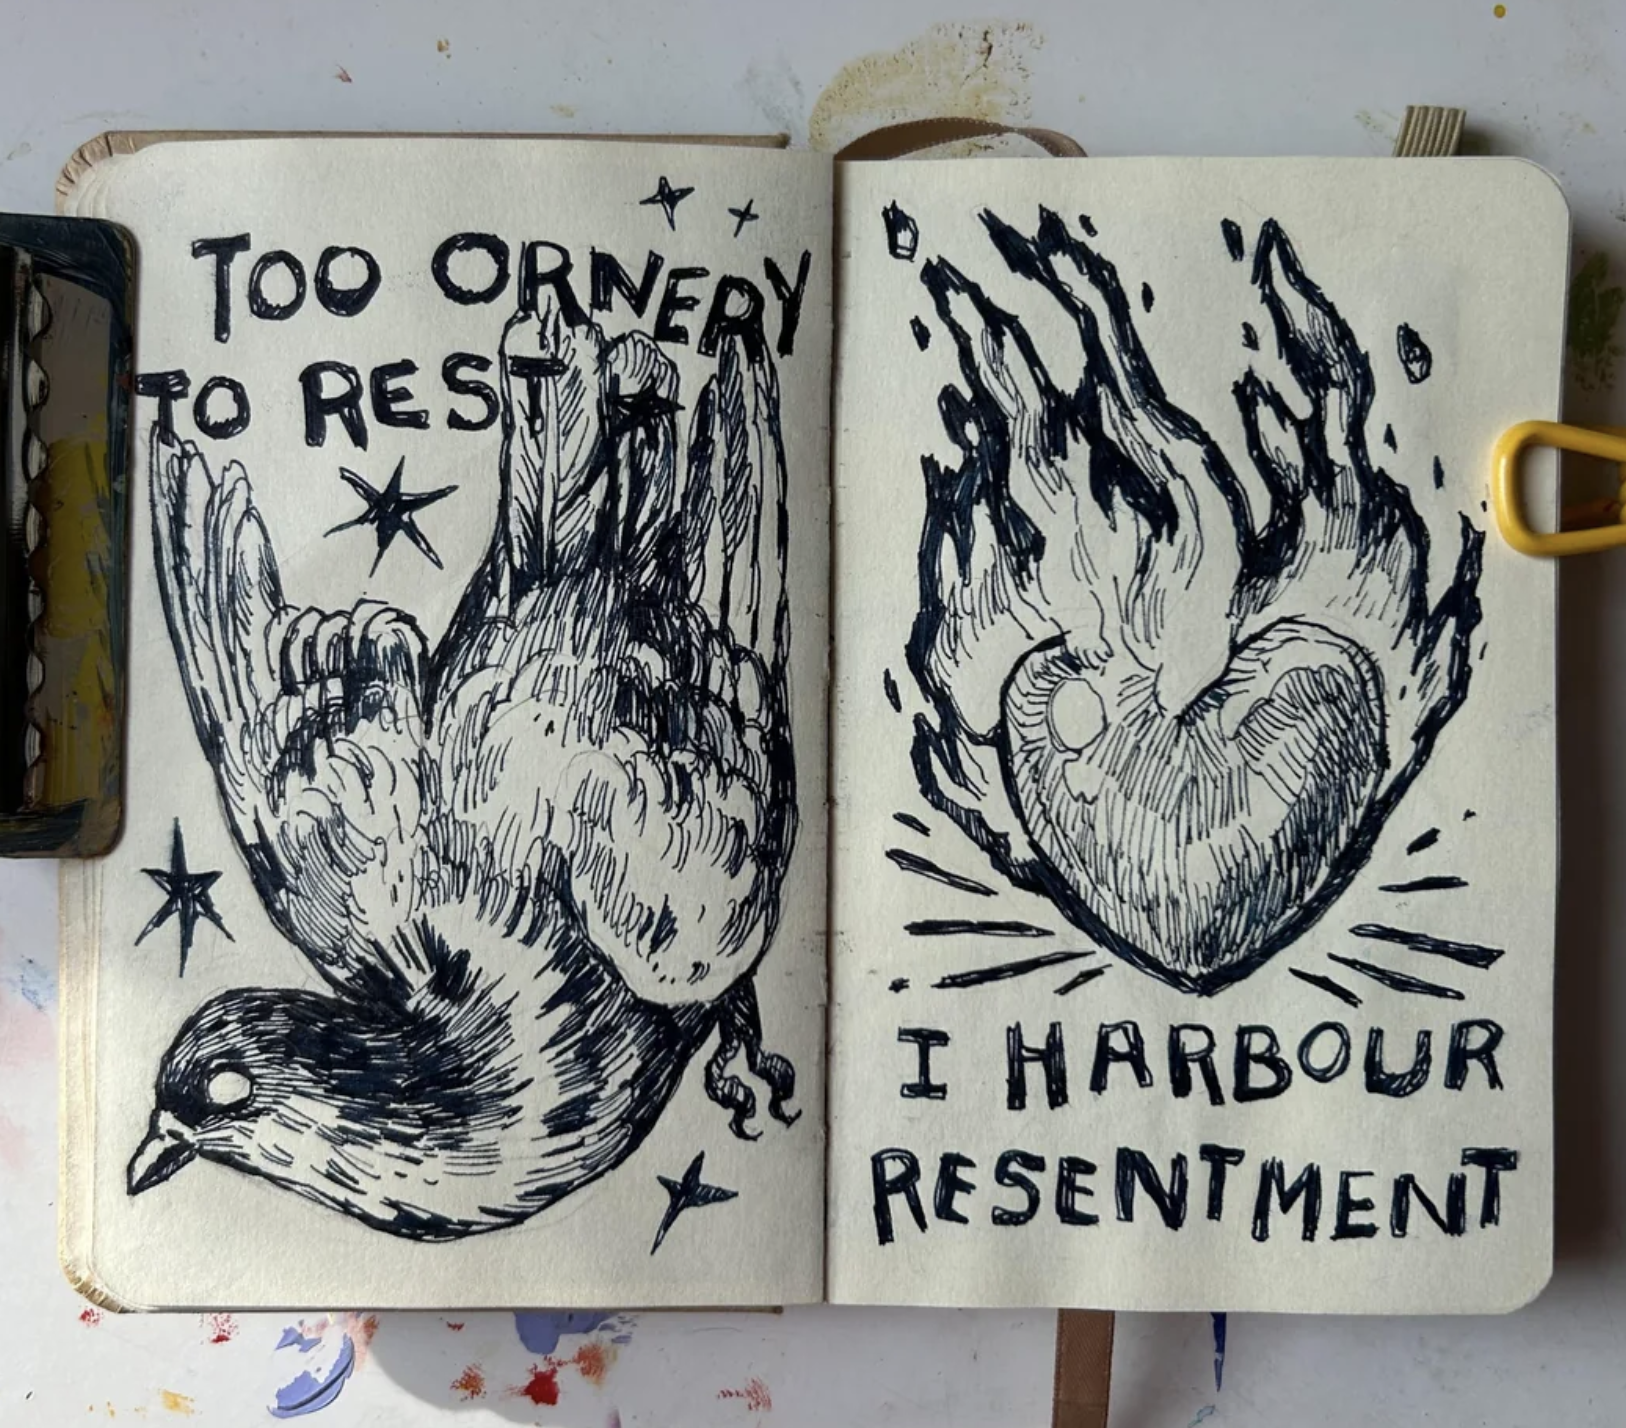 TOO ORNERY
TO REST
I HARBOUR
RESENTMENT